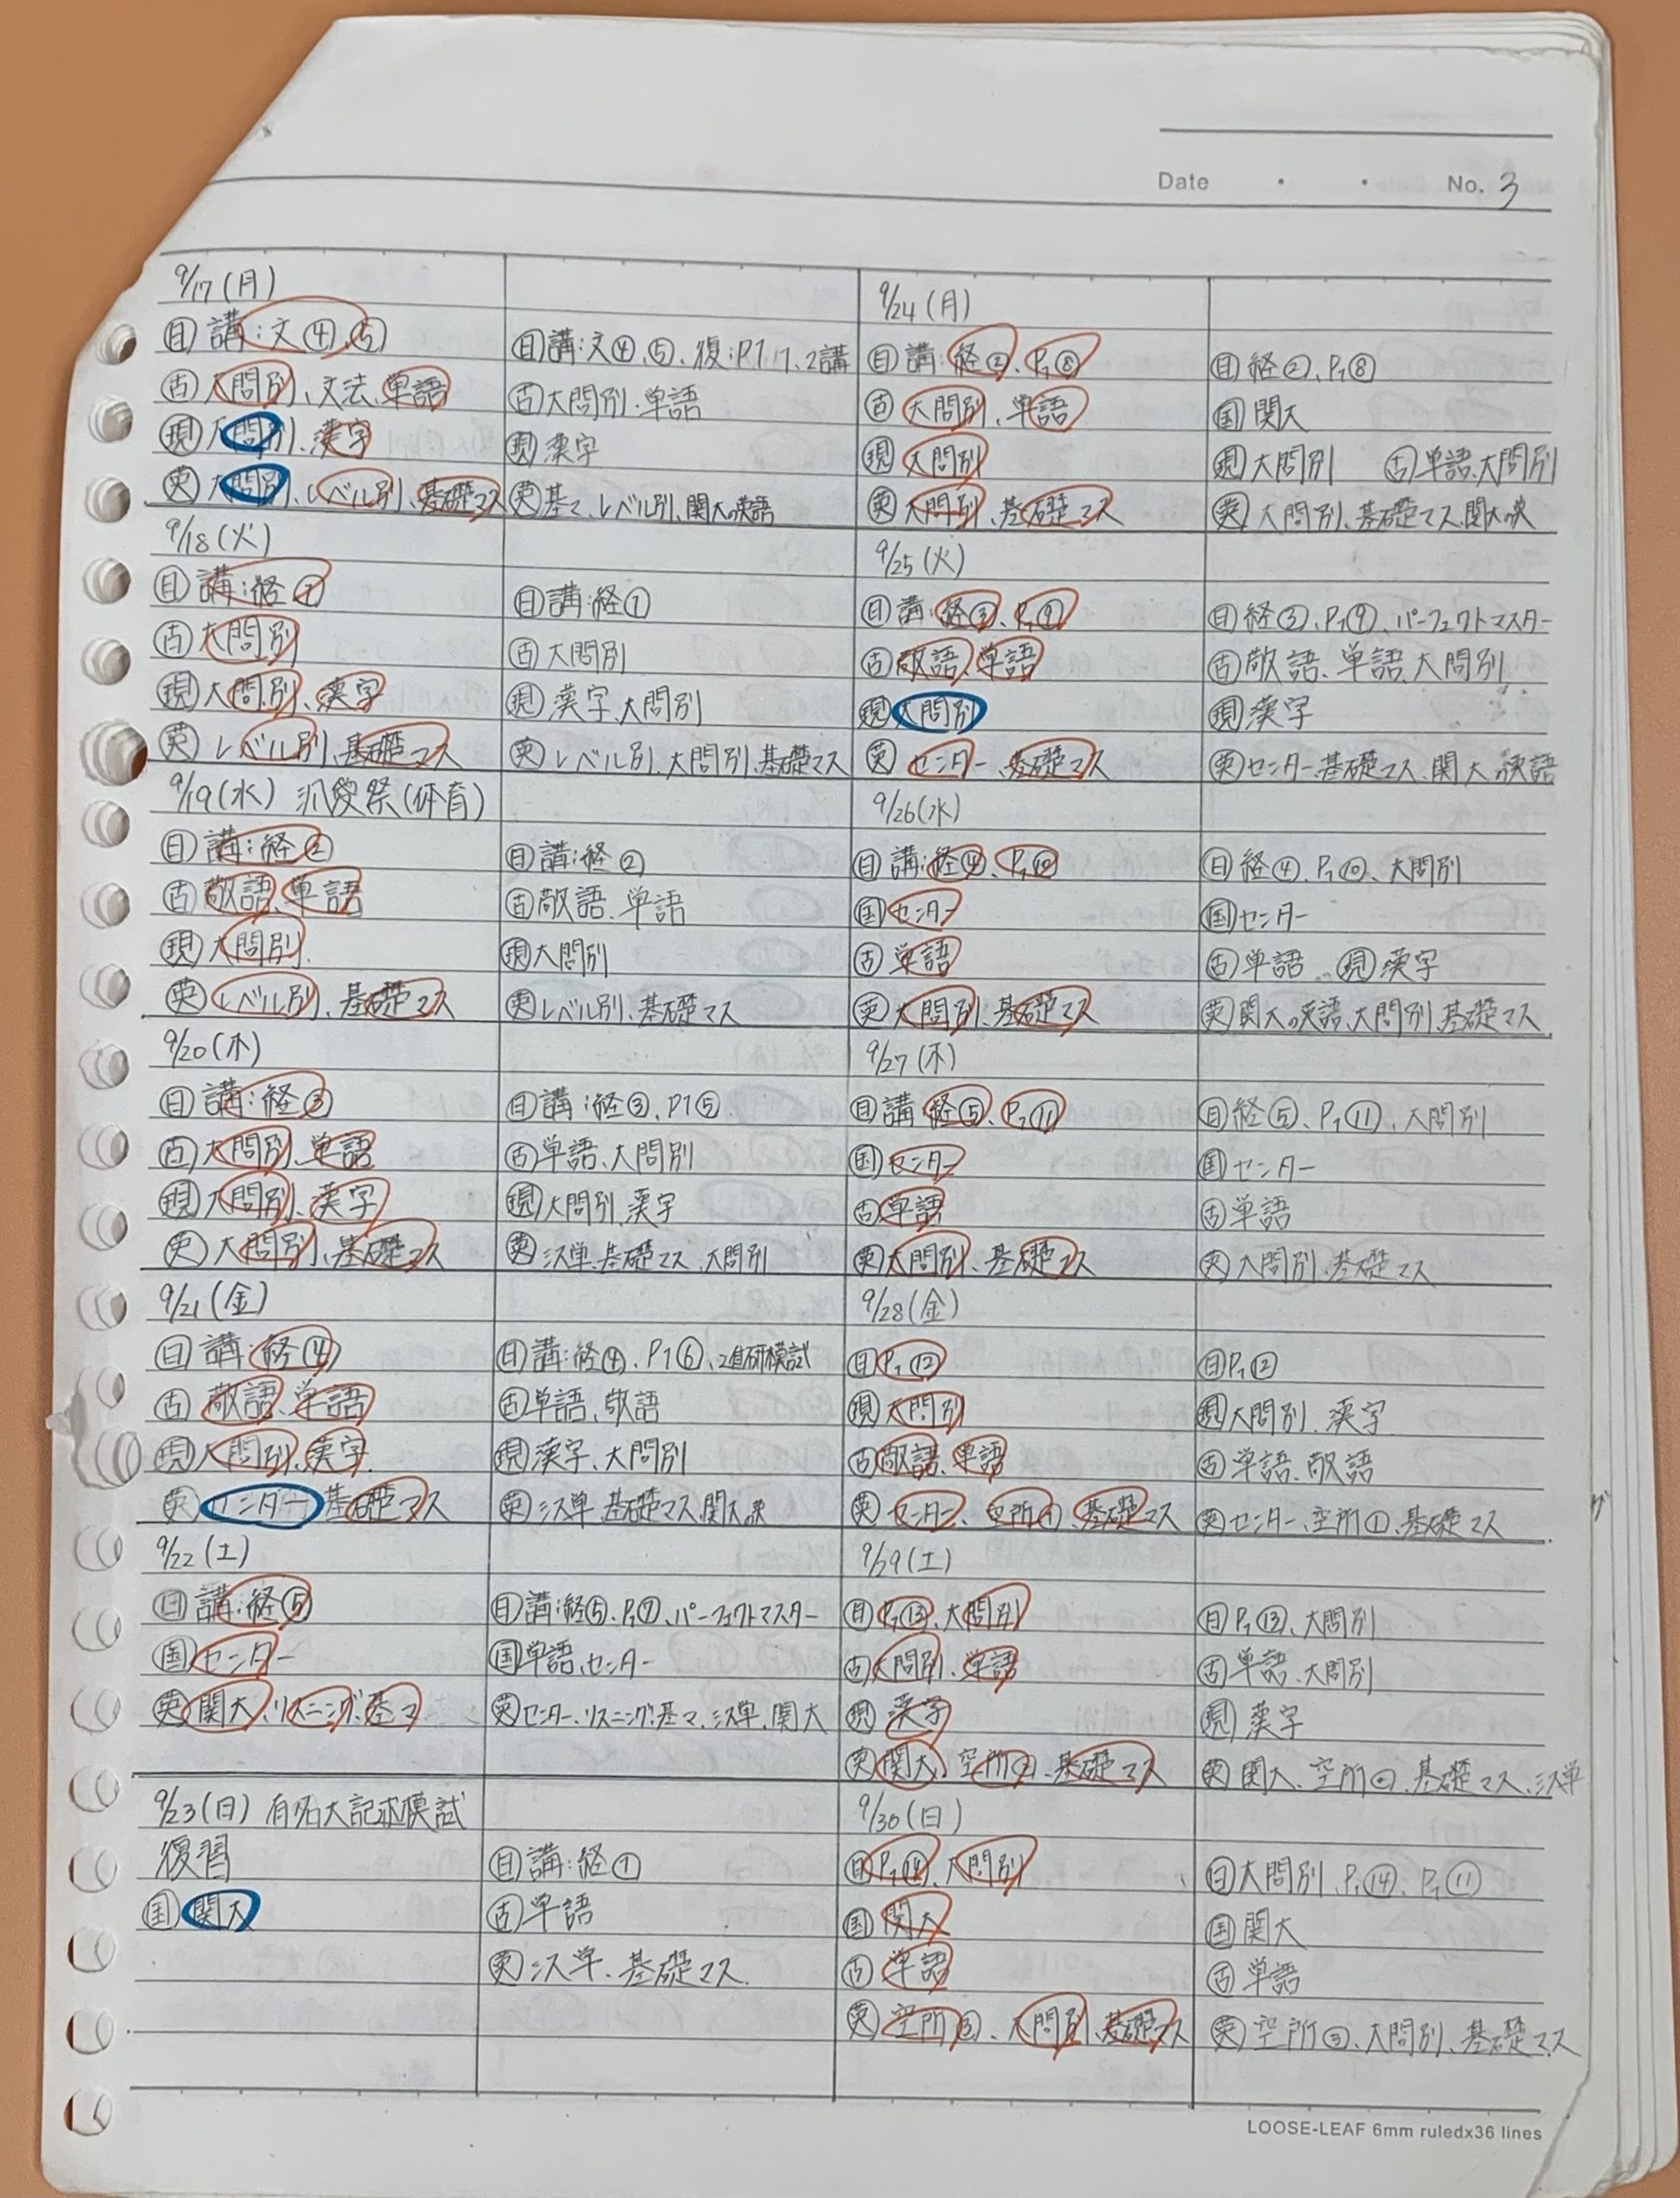 Date ・ ・ No. 3
9/17(月)
㊐ 講:文④、⑤
㊁ 大問別、文法、単語
現 大問別、漢字
英 大問別、レベル別、基礎マス
日 講:文④、⑤、復:P1 1、2講
古 大問別、単語
現 漢字
英 基マ、レベル別、関大の英語
9/18(火)
日 講:経①
古 大問別
現 大問別、漢字
英 レベル別、基礎マス
日 講:経①
古 大問別
現 漢字、大問別
英 レベル別、大問別、基礎マス
9/19(水) 祭(体育)
日 講:経②
古 敬語、単語
現 大問別
英 レベル別、基礎マス
日 講:経②
古 敬語、単語
現 大問別
英 レベル別、基礎マス
9/20(木)
日 講:経③
古 大問別、単語
現 大問別、漢字
英 大問別、基礎マス
日 講:経③、P1⑤
古 単語、大問別
現 大問別、漢字
英 シス単、基礎マス、大問別
9/21(金)
日 講:経④
古 敬語、単語
現 大問別、漢字
英 センター 基礎マス
日 講:経④、P1⑥、進研模試
古 単語、敬語
現 漢字、大問別
英 シス単、基礎マス、関大英
9/22(土)
日 講:経⑤
国 センター
英 関大、リスニング、基マ
日 講:経⑤、P1⑦、パーフェクトマスター
国 単語、センター
英 センター、リスニング、基マ、シス単、関大
9/23(日) 有名大記述模試
復習
国 関大
日 講:経①
古 単語
英 シス単、基礎マス
9/24(月)
日 講:経②、P1⑧
古 大問別、単語
現 大問別
英 大問別、基礎マス
日 経②、P1⑧
国 関大
現 大問別 古 単語、大問別
英 大問別、基礎マス、関大の英
9/25(火)
日 講:経③、P1⑨
古 敬語、単語
現 大問別
英 センター、基礎マス
日 経③、P1⑨、パーフェクトマスター
古 敬語、単語、大問別
現 漢字
英 センター、基礎マス、関大の英語
9/26(水)
日 講:経④、P1⑩
国 センター
古 単語
英 大問別、基礎マス
日 経④、P1⑩、大問別
国 センター
古 単語、現 漢字
英 関大の英語、大問別、基礎マス
9/27(木)
日 講 経⑤、P1⑪
国 センター
古 単語
英 大問別、基礎マス
日 経⑤、P1⑪、大問別
国 センター
古 単語
英 大問別、基礎マス
9/28(金)
日 P1⑫
現 大問別
古 敬語、単語
英 センター、空所①、基礎マス
日 P1⑫
現 大問別、漢字
古 単語、敬語
英 センター、空所①、基礎マス
9/29(土)
日 P1⑬、大問別
古 大問別、単語
現 漢字
英 関大、空所②、基礎マス
日 P1⑬、大問別
古 単語、大問別
現 漢字
英 関大、空所②、基礎マス、シス単
9/30(日)
日 P1⑭、大問別
国 関大
古 単語
英 空所③、大問別、基礎マス
日 大問別、P1⑭、P1⑪
国 関大
古 単語
英 空所③、大問別、基礎マス
LOOSE-LEAF 6mm ruledx36 lines